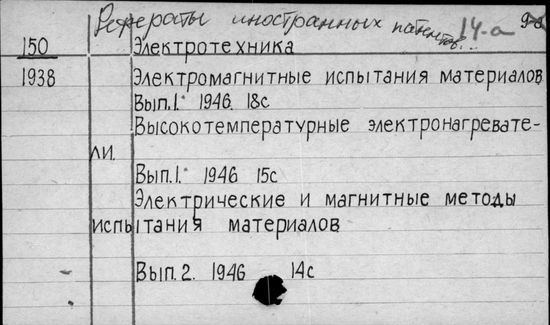 Рефераты иностранных патентов.. 14-а
150 Электротехника
1938 Электромагнитные испытания материалов
Вып.1. 1946. 18с
Высокотемпературные электронагревате-
ли.
Вып.1. 1946 15с
Электрические и магнитные методы
испытания материалов
Вып.2. 1946 14с